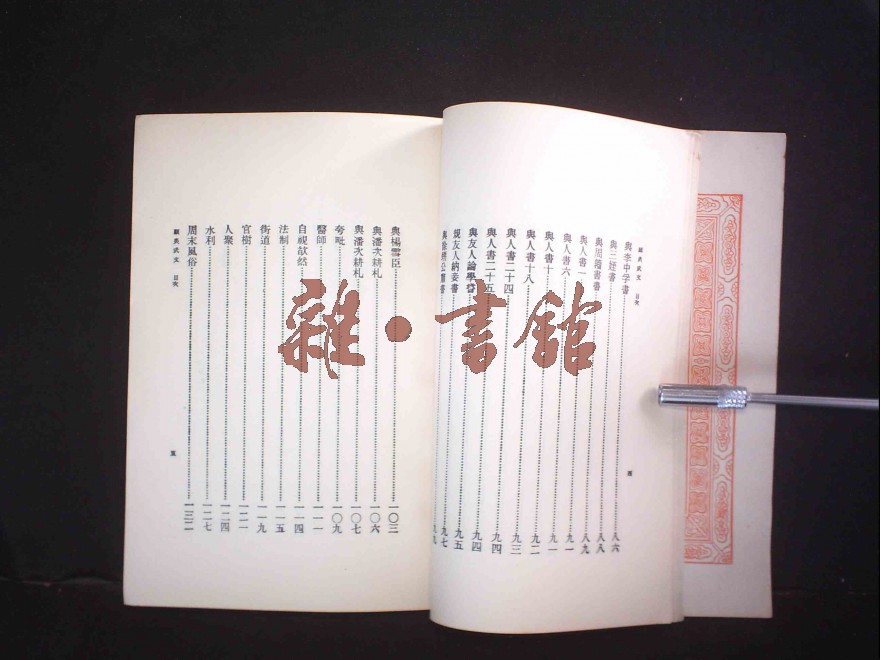 顧炎武文 目次
與李中孚書……八六
與三姪書……八八
與周籀書書……八九
與人書一……九一
與人書六……九一
與人書十……九二
與人書十八……九三
與人書二十四……九四
與人書二十五……九四
與友人論學書……九五
規友人納妾書……九七
與徐甥公肅書……九九
四
與楊雪臣……一〇三
與潘次耕札……一〇六
與潘次耕札……一〇七
夸毗……一〇九
醫師……一一一
自視欿然……一一四
法制……一一五
街道……一一九
官樹……一二一
人聚……一二四
水利……一二七
周末風俗……一三二
顧炎武文 目次
五
雜·書館